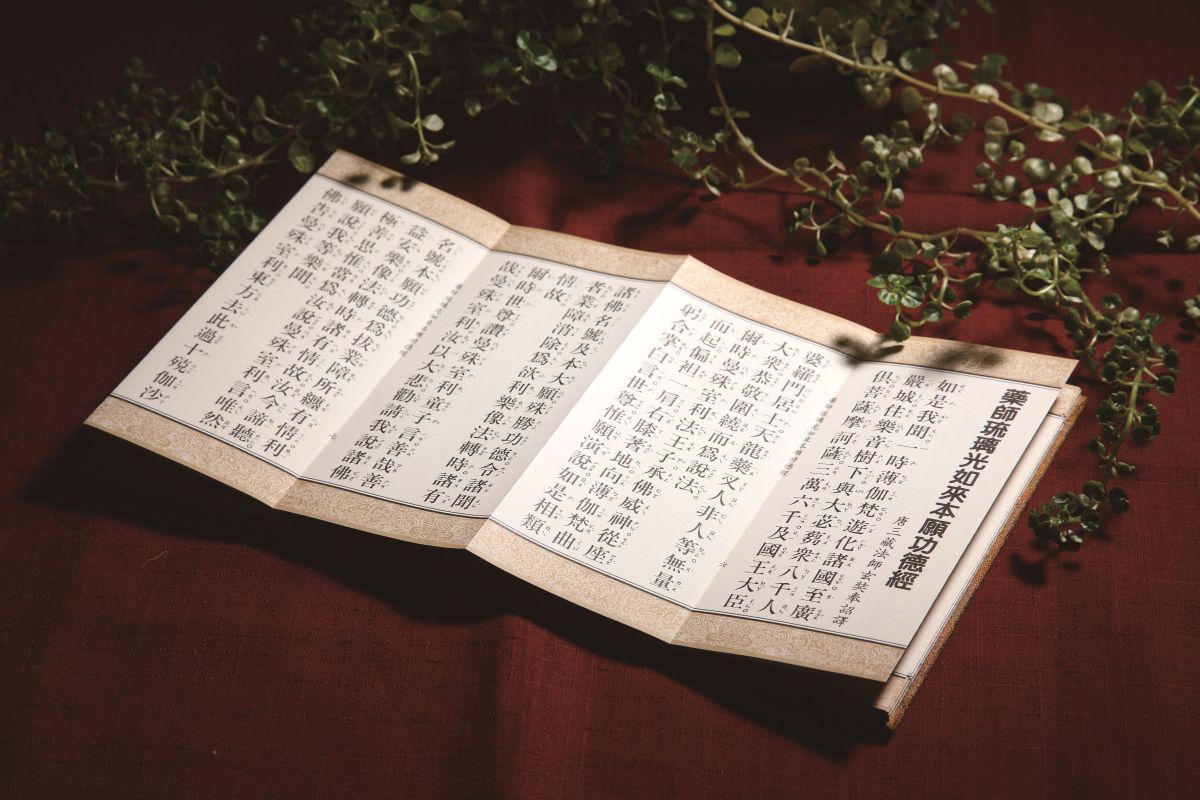 藥師琉璃光如來本願功德經
唐三藏法師玄奘奉詔譯
如是我聞一時薄伽梵遊化諸國至廣
嚴城住樂音樹下與大苾芻眾八千人
俱菩薩摩訶薩三萬六千及國王大臣
藥師琉璃光如來本願功德經
六
婆羅門居士天龍藥叉人非人等無量
大眾恭敬圍繞而爲說法
爾時曼殊室利法王子承佛威神從座
而起偏袒一肩右膝著地向薄伽梵曲
躬合掌白言世尊惟願演說如是相類
諸佛名號及本大願殊勝功德令諸聞
者業障消除爲欲利樂像法轉時諸有
情故
爾時世尊讚曼殊室利童子言善哉善
哉曼殊室利汝以大悲勸請我說諸佛
七
名號本願功德爲拔業障所纏有情利
益安樂像法轉時諸有情故汝今諦聽
極善思惟當爲汝說曼殊室利言唯然
願說我等樂聞
佛告曼殊室利東方去此過十殑伽沙